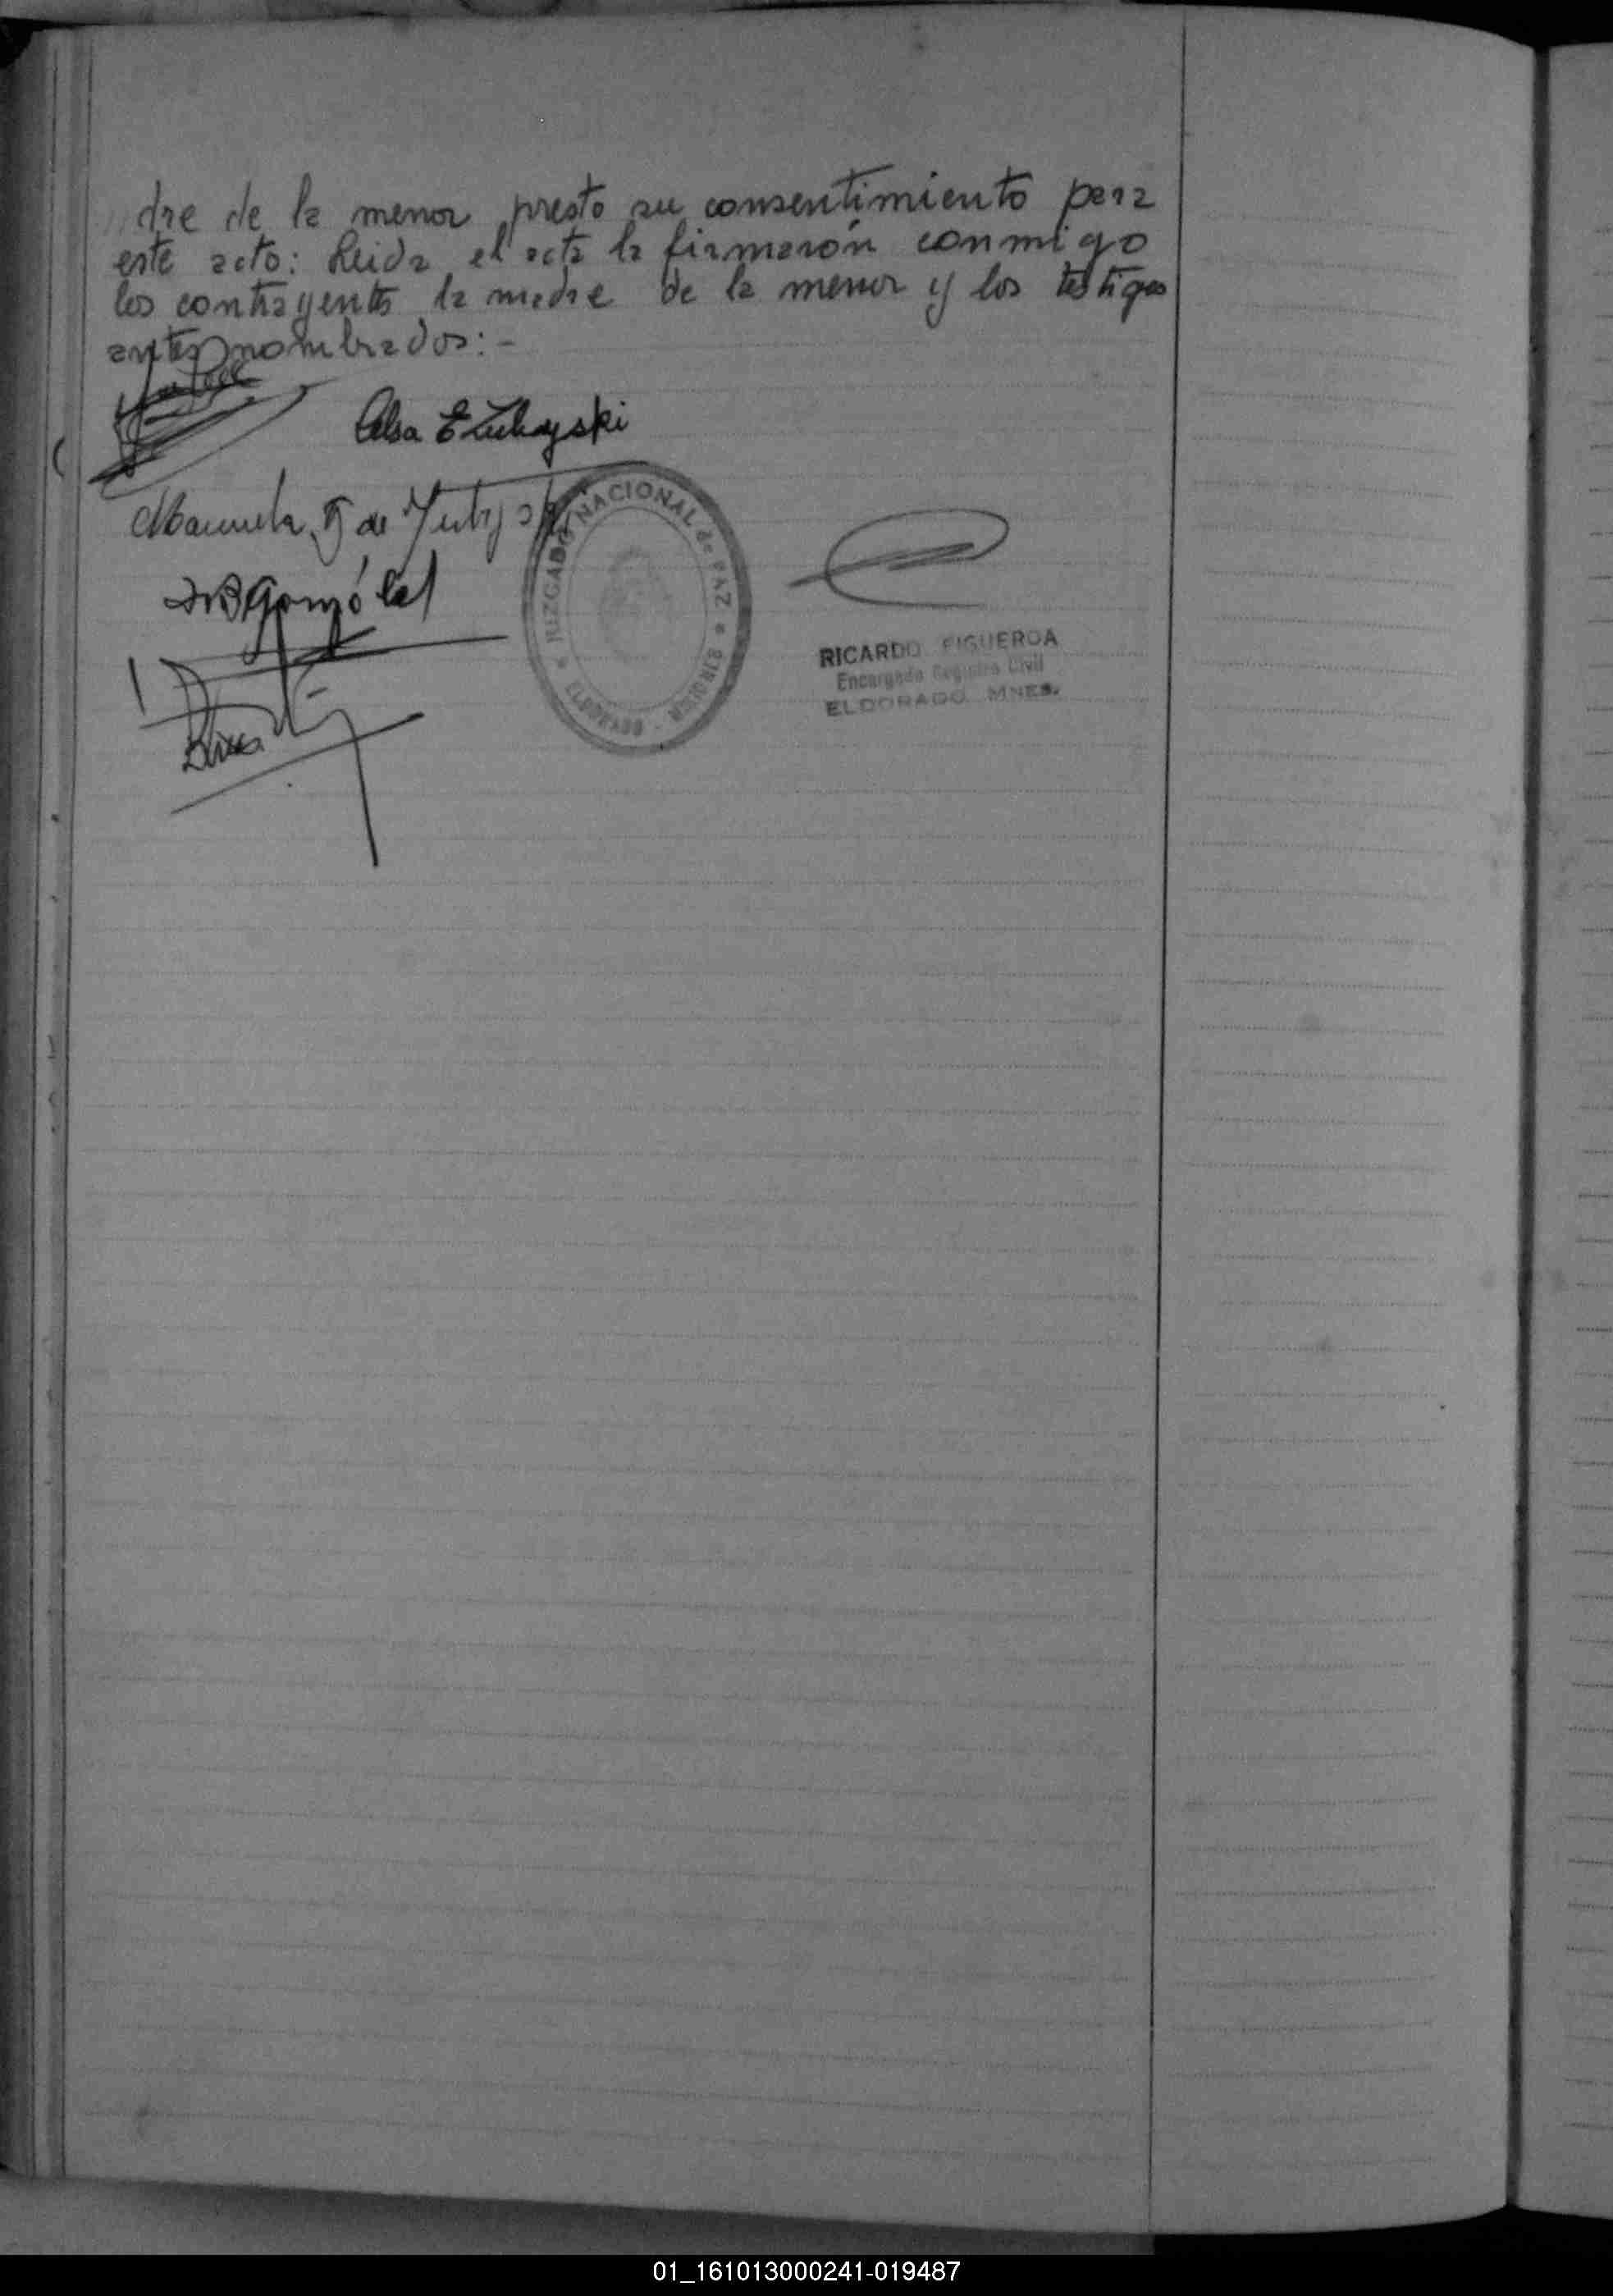 dre de la menor presto su consentimiento para
este acto: Leida el acta la firmarón conmigo
los contrayentes la madre de la menor y los testigos
antes nombrados:-
Elsa E
Manuela de
JUZGADO NACIONAL de PAZ
ELDORADO - MISIONES
RICARDO FIGUEROA
Encargado Registro Civil
ELDORADO MNES.
01_161013000241-019487